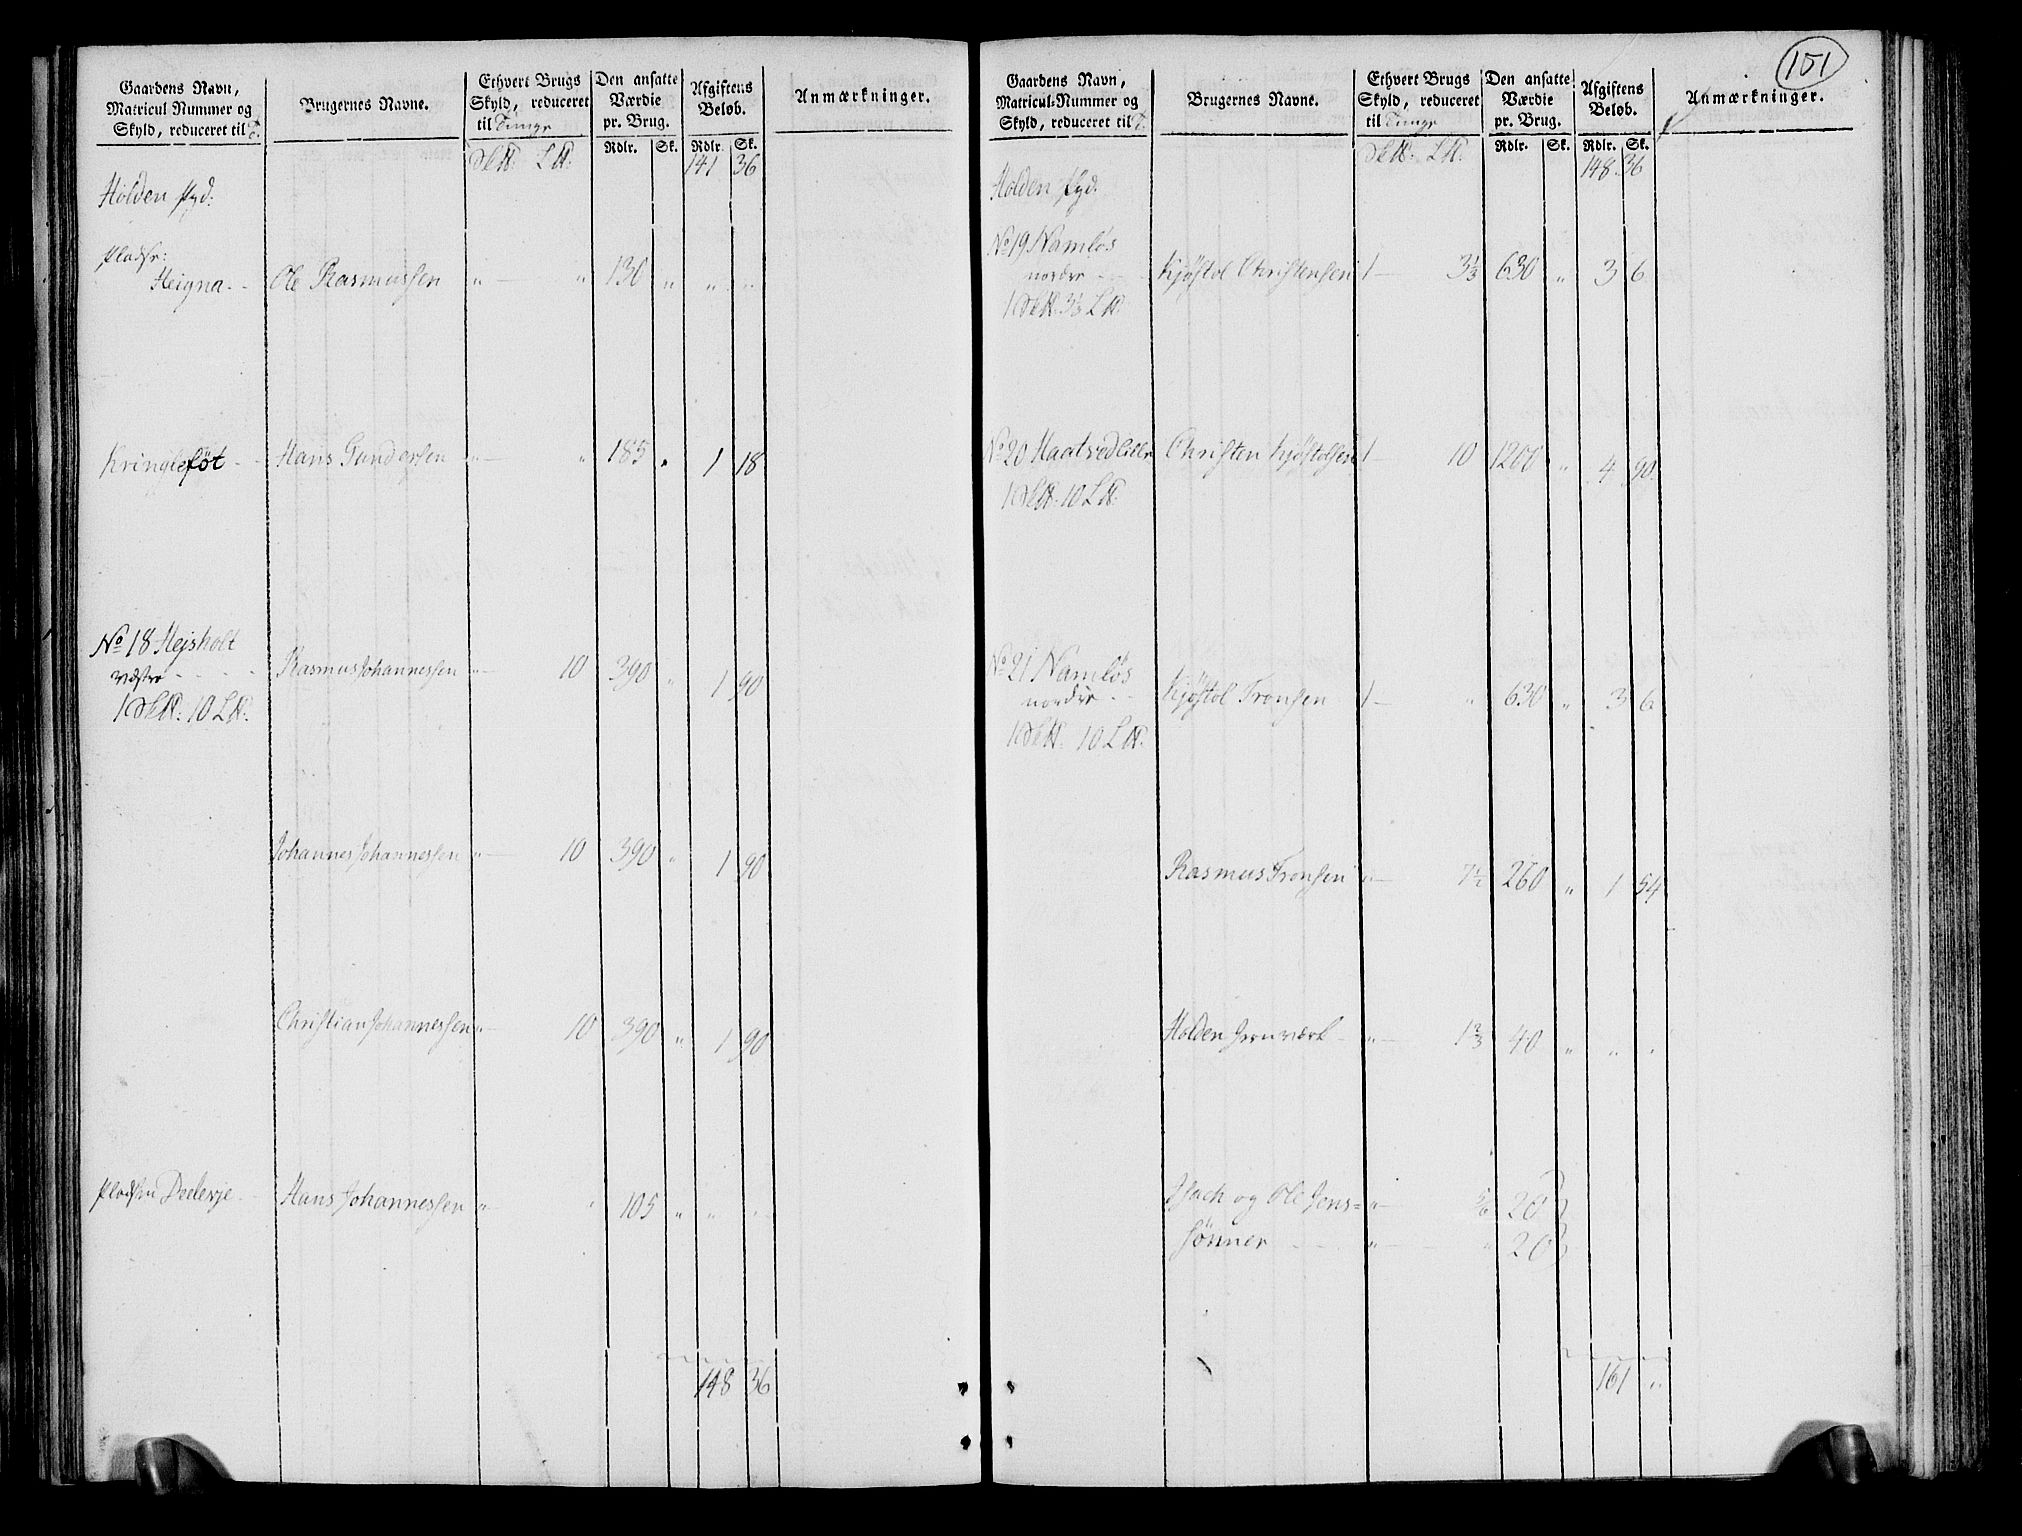 151
Gaardens Navn,
Matricul Nummer og
Skyld, reduceret til T.
Brugernes Navne.
Ethvert Brugs
Skyld, reduceret
til Tunge
Den ansatte
Værdie
pr. Brug.
Rdlr. Sk.
Afgiftens
Beløb.
Rdlr. Sk.
Anmærkninger.
141 36
Holden
Pladsr:
Heigna - - Ole Rasmussen " — " 130 " " "
Kringleföt - - Hans Gundersen " — " 185 " 1 18
No 18 Hejsholt
væstre - - - - Rasmus Johannessen " — 10 390 " 1 90
1 10
Johannes Johannessen " — 10 390 " 1 90
Christian Johannessen " — 10 390 " 1 90
Pladsen Deelevje - Hans Johannessen " — " 105 " " "
148 36
Gaardens Navn,
Matricul-Nummer og
Skyld, reduceret til T.
Brugernes Navne.
Ethvert Brugs
Skyld, reduceret
til Tunge
Den ansatte
Værdie
pr. Brug.
Rdlr. Sk.
Afgiftens
Beløb.
Rdlr. Sk.
Anmærkninger.
148 36
Holden
No 19 Namløs
nordre - - Kjøstol Christensen 1 — 3⅓ 630 " 3 6
1 3⅓
No 20 Christen Kjøstolsen 1 — 10 1200 " 4 90
1 10
No 21 Namløs
nordre - - Kjøstol Tronsen 1 — " 630 " 3 6
1 10
Rasmus Tronsen " — 7½ 260 " 1 54
Holden Jernværk - " — 1⅔ 40 " " "
Isach og Ole Jens= " — ⅚ 20
sønner - - - - " — " 20
161 "